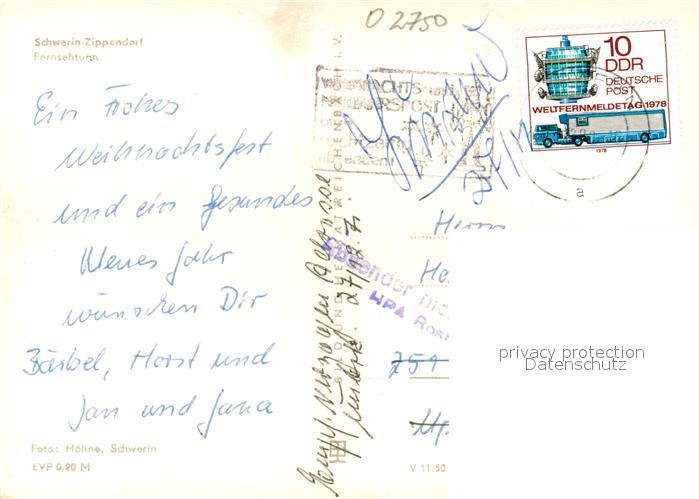 O 2750
Schwerin-Zippendorf
Fernsehturm
Ein Frohes
Weihnachtsfest
und ein gesundes
Neues Jahr
wünschen Dir
Bärbel, Horst und
Jan und Jana
Foto: Höhne, Schwerin
EVP 0,20 M
V 11 50
BILD UND HEIMAT REICHENBACH I. V.
10
DDR
DEUTSCHE
POST
WELTFERNMELDETAG 1978
1978
a
Herrn
Absender
HPA
Empf. verzogen Adresse
unbek.
751
privacy protection
Datenschutz